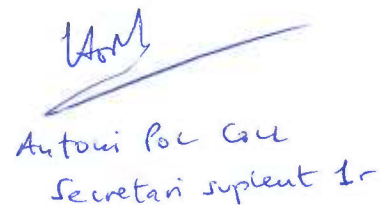 Antoni Pol Coll
Secretari suplent 1r